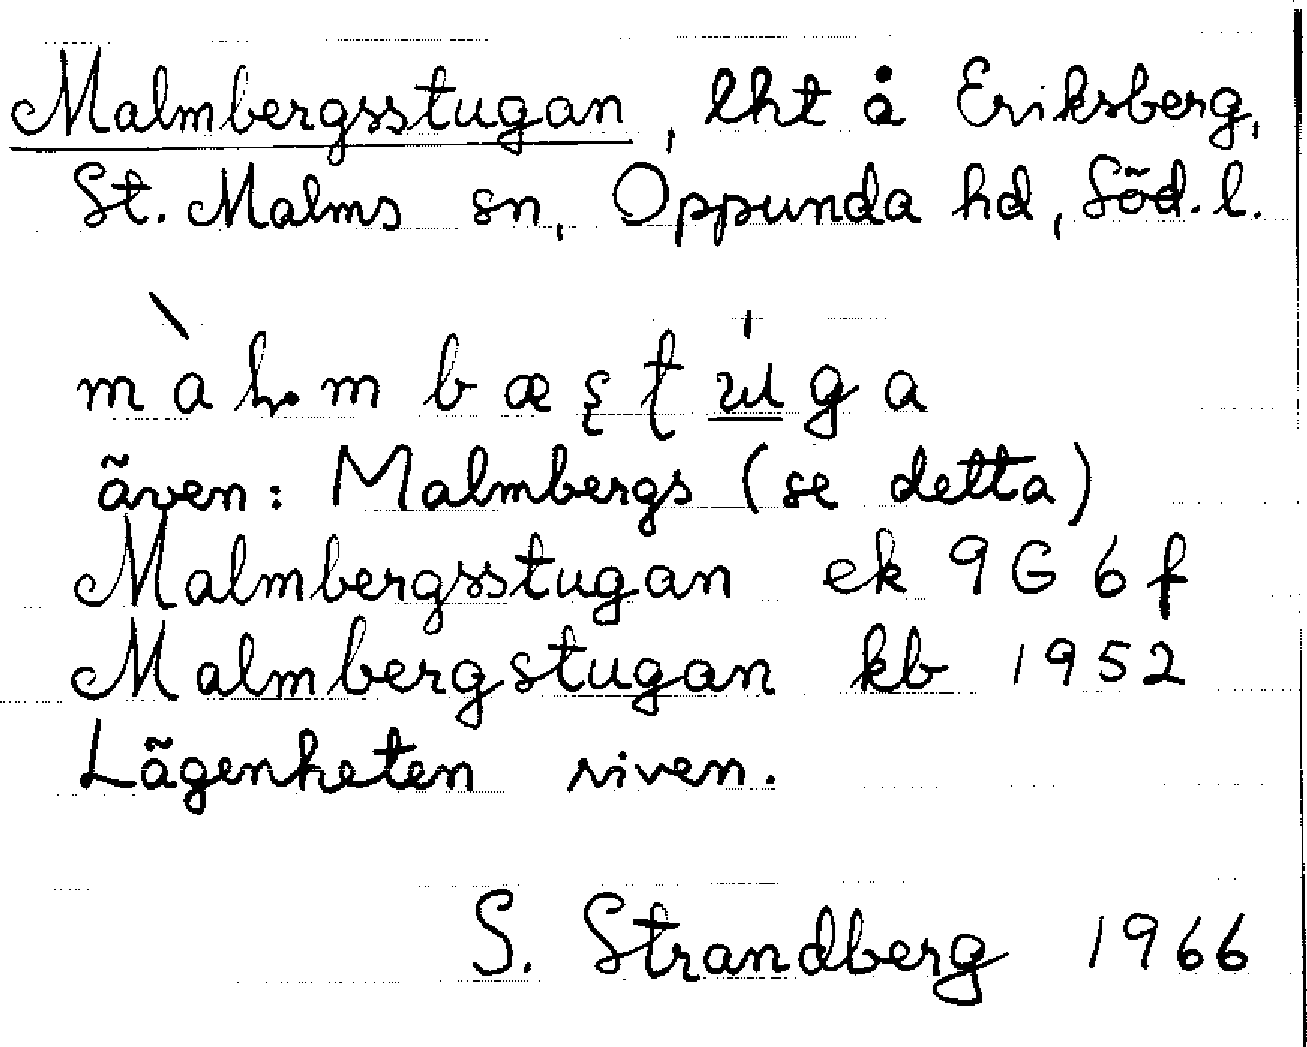 Malmbergsstugan, lht å Eriksberg,
St. Malms sn, Oppunda hd, Söd. l.
även: Malmbergs (se detta)
Malmbergsstugan ek 9G6f
Malmbergstugan kb 1952
Lägenheten riven.
S. Strandberg 1966